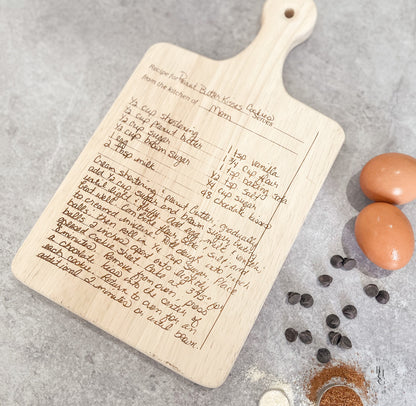 Recipe for Peanut Butter Kisses Cookies
from the kitchen of Mom
serves
½ cup shortening
½ cup peanut butter
½ cup sugar
½ cup brown sugar
1 egg
2 Tbsp milk
1 tsp vanilla
1 ¾ cup flour
1 tsp baking soda
½ tsp salt
¼ cup sugar
48 chocolate kisses
Cream shortening & peanut butter, gradually
add ½ cup sugar and brown sugar, beating
until light & fluffy. Add egg, milk, & vanilla;
beat well.
to creamed mixture
balls. Then roll in ¼ cup sugar. Place
2 inches apart on lightly
cookie sheet. Bake at 375° for
Remove from oven, press
a chocolate kiss into the center of
each cookie. Return to oven for an
additional 2 minutes or until brown.